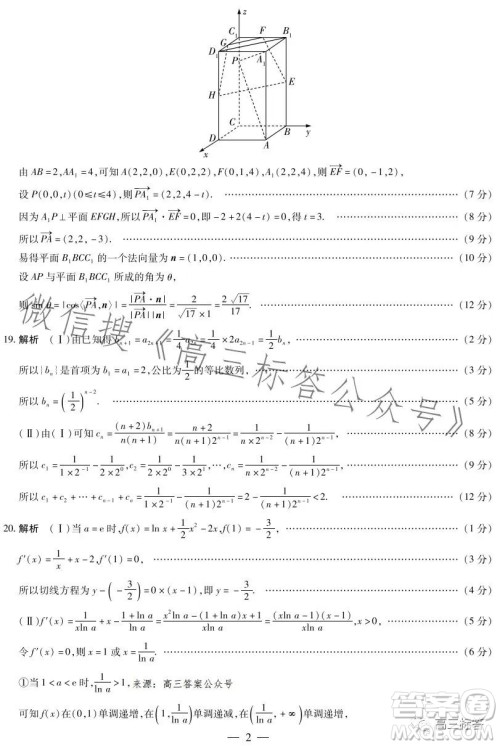 z
C₁ F B₁
G
D₁ A₁
P
E
H
C
B y
D
A
x
由 AB=2,AA₁=4,可知 A(2,2,0),E(0,2,2),F(0,1,4),A₁(2,2,4),则 $\overrightarrow{EF}$=(0,-1,2),
设 P(0,0,t)(0≤t≤4),则 $\overrightarrow{PA_1}$=(2,2,4-t). (7 分)
因为 A₁P⊥平面 EFGH,所以 $\overrightarrow{PA_1}$·$\overrightarrow{EF}$=0,即 -2+2(4-t)=0,得 t=3. (8 分)
所以 $\overrightarrow{PA}$=(2,2,-3). (9 分)
易得平面 B₁BCC₁ 的一个法向量为 n=(1,0,0). (10 分)
设 AP 与平面 B₁BCC₁ 所成的角为 θ,
则 sin θ=|cos⟨$\overrightarrow{PA}$,n⟩|=$\frac{|\overrightarrow{PA}·n|}{|\overrightarrow{PA}||n|}$=$\frac{2}{\sqrt{17}×1}$=$\frac{2\sqrt{17}}{17}$. (12 分)
19. 解析 (Ⅰ)由已知得 $b_{n+1}=a_{2n+1}$=$\frac{1}{4}$ $\frac{1}{4}×2a_{2n-1}=\frac{1}{2}b_n$, (2 分)
所以{bₙ}是首项为 b₁=a₁=2,公比为 的等比数列, (4 分)
所以 $b_n=\left(\frac{1}{2}\right)^{n-2}$. (5 分)
(Ⅱ)由(Ⅰ)可知 $c_n=\frac{(n+2)b_{n+1}}{n(n+1)}=\frac{n+2}{n(n+1)2^{n-1}}=\frac{1}{n2^{n-2}}-\frac{1}{(n+1)2^{n-1}}$, (8 分)
所以 $c_1=\frac{1}{1×2^{-1}}-\frac{1}{2×2^0},c_2=\frac{1}{2×2^0}-\frac{1}{3×2^1},…,c_n=\frac{1}{n2^{n-2}}-\frac{1}{(n+1)2^{n-1}}$, (9 分)
所以 $c_1+c_2+…+c_n=\frac{1}{1×2^{-1}}-\frac{1}{(n+1)2^{n-1}}=2-\frac{1}{(n+1)2^{n-1}}<2$. (12 分)
20. 解析 (Ⅰ)当 a=e 时,$f(x)=\ln x+\frac{1}{2}x^2-2x,f(1)=-\frac{3}{2}$, (1 分)
$f'(x)=\frac{1}{x}+x-2,f'(1)=0$, (3 分)
所以切线方程为 $y-\left(-\frac{3}{2}\right)=0×(x-1)$,即 $y=-\frac{3}{2}$. (4 分)
(Ⅱ)$f'(x)=\frac{1}{x\ln a}+x-\frac{1+\ln a}{\ln a}=\frac{x^2\ln a-(1+\ln a)x+1}{x\ln a}=\frac{(x\ln a-1)(x-1)}{x\ln a},x>0$, (5 分)
令 f′(x)=0,则 x=1 或 $x=\frac{1}{\ln a}$. (6 分)
①当 1<a<e 时,$\frac{1}{\ln a}>1$, 来源:高三答案公众号
可知 f(x)在(0,1)单调递增,在$\left(1,\frac{1}{\ln a}\right)$单调递减,在$\left(\frac{1}{\ln a},+∞\right)$单调递增,
— 2 —
微信搜《高三标答公众号》
高三标答